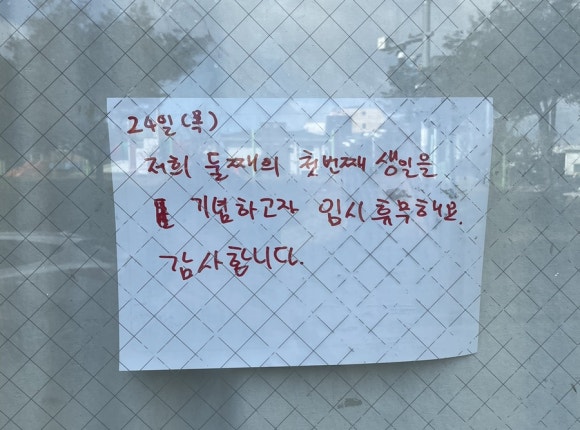 24일(목)
저희 둘째의 첫번째 생일을
기념하고자 임시휴무해요.
감사합니다.